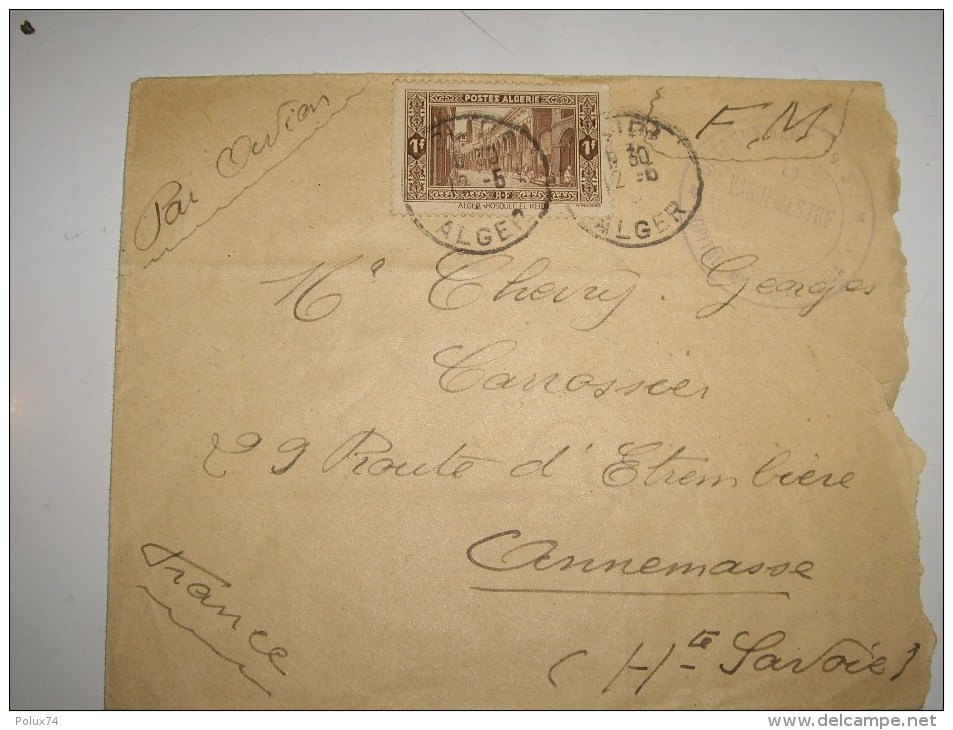 Par Avion
F.M
POSTES ALGERIE
1F 1F
RF
ALGER-MOSQUEE EL KEBIR
ALGER
30
12 -5
ALGER
Mr Chevry. Georges
Carrossier
29 Route d'Etrembière
Annemasse
(Hte Savoie)
France
Polux74
www.delcampe.net